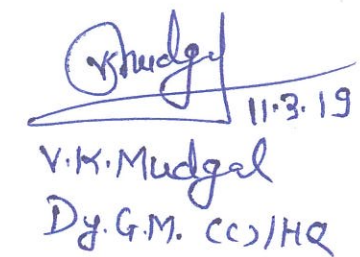 VKMudgal
11.3.19
V.K.Mudgal
Dy.G.M. (C)/HQ